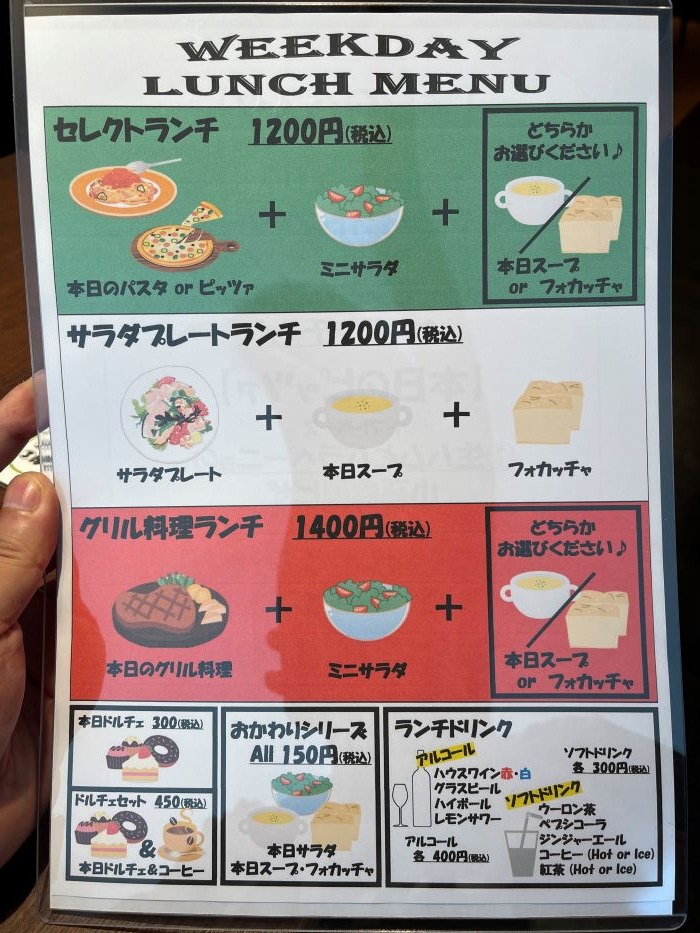 WEEKDAY
LUNCH MENU
セレクトランチ 1200円(税込)
どちらか
お選びください♪
+
+
ミニサラダ
本日のパスタ or ピッツァ
本日スープ
or フォカッチャ
サラダプレートランチ 1200円(税込)
+
+
サラダプレート
本日スープ
フォカッチャ
グリル料理ランチ 1400円(税込)
どちらか
お選びください♪
+
+
本日のグリル料理
ミニサラダ
本日スープ
or フォカッチャ
本日ドルチェ 300(税込)
ドルチェセット 450(税込)
&
本日ドルチェ&コーヒー
おかわりシリーズ
All 150円(税込)
本日サラダ
本日スープ・フォカッチャ
ランチドリンク
アルコール
ハウスワイン赤・白
グラスビール
ハイボール
レモンサワー
アルコール
各 400円(税込)
ソフトドリンク
各 300円(税込)
ソフトドリンク
ウーロン茶
ペプシコーラ
ジンジャーエール
コーヒー (Hot or Ice)
紅茶 (Hot or Ice)